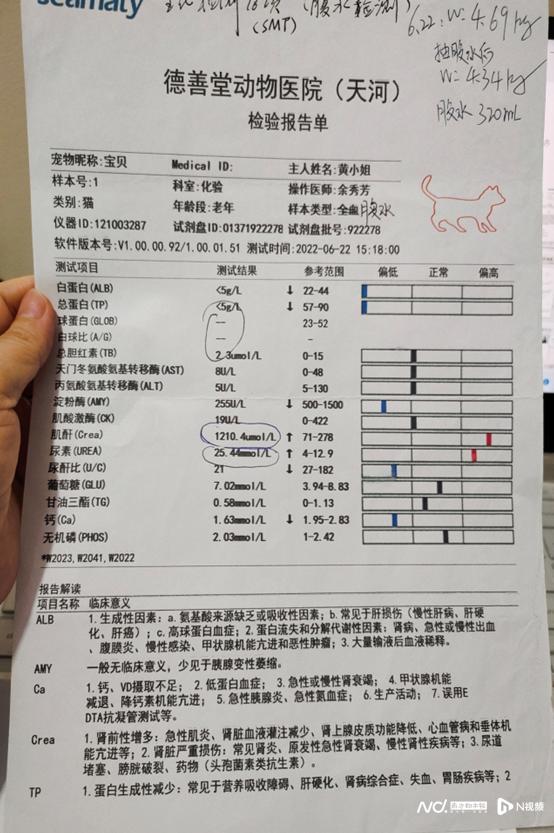 Seamaty
(SMT)
(腹水检测)
6.22: W: 4.69kg
抽腹水后
W: 4.34kg
腹水 320mL
德善堂动物医院（天河）
检验报告单
宠物昵称:宝贝 Medical ID: 主人姓名:黄小姐
样本号:1 科室:化验 操作医师:余秀芳
类别:猫 年龄段:老年 样本类型:全血 腹水
仪器ID:121003287 试剂盘ID:01371922278 试剂盘批号:922278
软件版本号:V1.00.00.92/1.00.01.51 测试时间:2022-06-22 15:18:00
测试项目 测试结果 参考范围 偏低 正常 偏高
白蛋白(ALB) <5g/L ↓ 22-44
总蛋白(TP) <5g/L ↓ 57-90
球蛋白(GLOB) -- 23-52
白球比(A/G) -- -
总胆红素(TB) 2.3umol/L 0-15
天门冬氨酸氨基转移酶(AST) 8U/L 0-48
丙氨酸氨基转移酶(ALT) 5U/L 5-130
淀粉酶(AMY) 255U/L ↓ 500-1500
肌酸激酶(CK) 19U/L 0-422
肌酐(Crea) 1210.4umol/L ↑ 71-278
尿素(UREA) 25.44mmol/L ↑ 4-12.9
尿酐比(U/C) 21 ↓ 27-182
葡萄糖(GLU) 7.02mmol/L 3.94-8.83
甘油三酯(TG) 0.58mmol/L 0-1.13
钙(Ca) 1.63mmol/L ↓ 1.95-2.83
无机磷(PHOS) 2.03mmol/L 1-2.42
*W2023, W2041, W2022
报告解读
项目名称 临床意义
ALB 1.生成性因素: a.氨基酸来源缺乏或吸收性因素; b.常见于肝损伤（慢性肝病、肝硬
化、肝癌）; c.高球蛋白血症; 2.蛋白流失和分解代谢性因素: 肾病、急性或慢性出血
、腹膜炎、慢性感染、甲状腺机能亢进和恶性肿瘤; 3.大量输液后血液稀释。
AMY 一般无临床意义, 少见于胰腺变性萎缩。
Ca 1.钙、VD摄取不足; 2.低蛋白血症; 3.急性或慢性肾衰竭; 4.甲状腺机能
减退、降钙素机能亢进; 5.急性胰腺炎、急性氮血症; 6.生产活动; 7.误用E
DTA抗凝管测试等。
Crea 1.肾前性增多: 急性肌炎、肾脏血液灌注减少、肾上腺皮质功能降低、心血管病和垂体机
能亢进等; 2.肾脏严重损伤: 常见肾炎、原发性急性肾衰竭、慢性肾性疾病等; 3.尿道
堵塞、膀胱破裂、药物（头孢菌素类抗生素）。
TP 1.蛋白生成性减少: 常见于营养吸收障碍、肝硬化、肾病综合症、失血、胃肠疾病等; 2
南方都市报 N视频